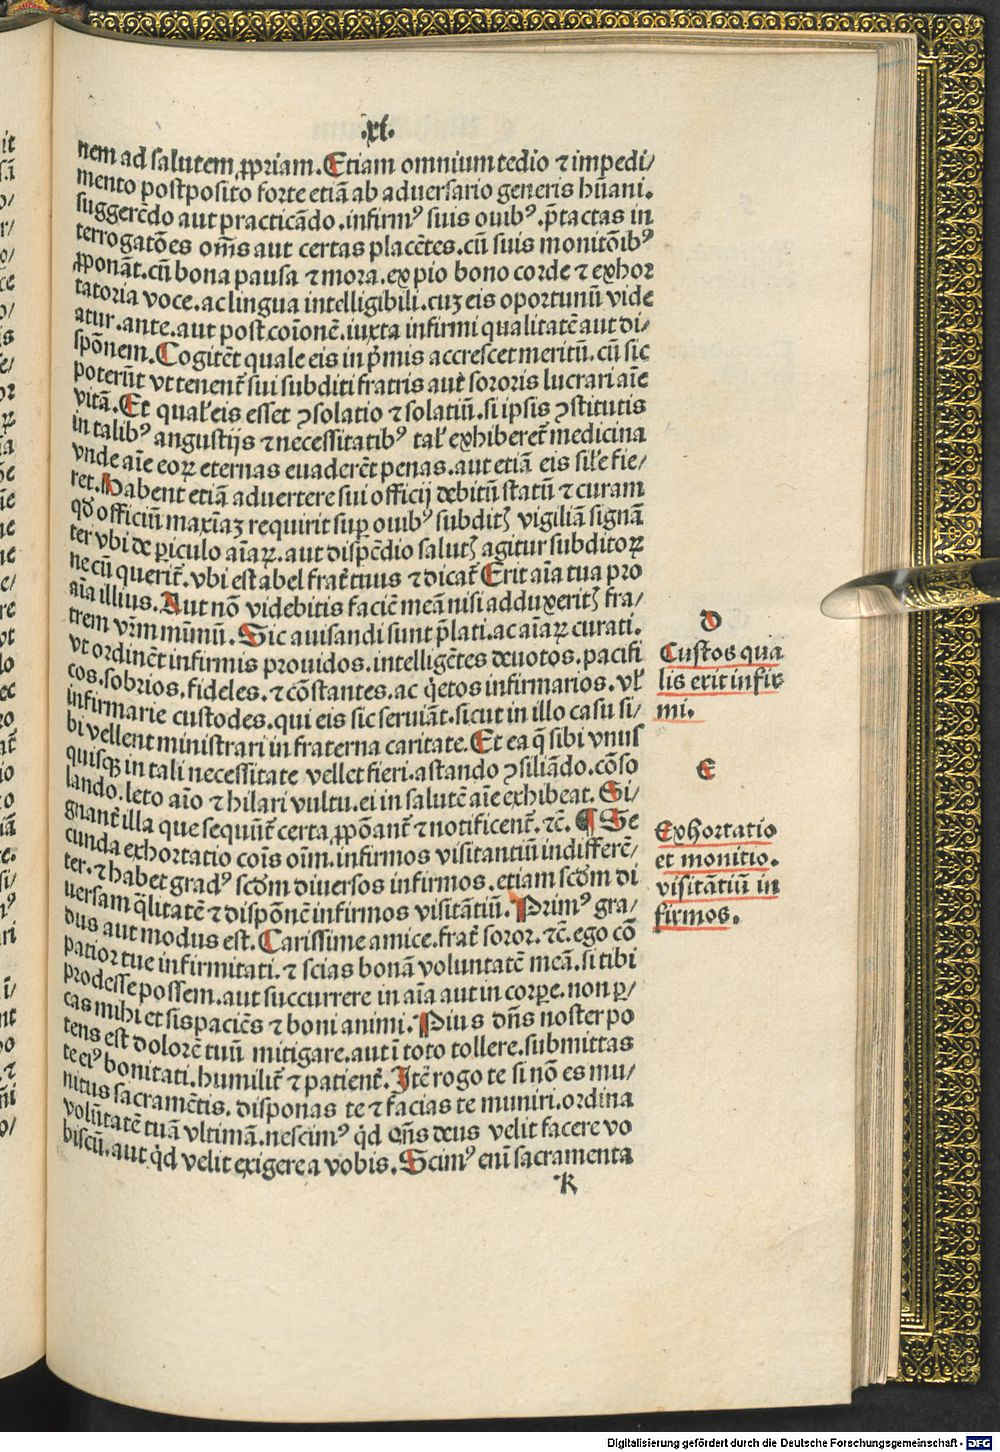 .xl.
nem ad salutem ꝓpriam. Etiam omnium tedio ⁊ impedi/
mento postposito forte etiā ab aduersario generis hūani.
suggerēdo aut practicādo. infirmꝰ suis ouibꝰ. p̄tactas in
terrogatōes om̄s aut certas placētes. cū suis monitōibꝰ
ꝓponāt. cū bona pausa ⁊ mora. ex pio bono corde ⁊ exhor
tatoria voce. ac lingua intelligibili. cuꝫ eis oportunū vide
atur. ante. aut post coīonē. iuxta infirmi qualitatē aut di/
spōnem. Cogitēt quale eis in p̄mis accrescet meritū. cū sic
poterūt vt tenent̄ sui subditi fratris aut̄ sororis lucrari aīe
vitā. Et qual̄ eis esset ꝯsolatio ⁊ solatiū. si ipsis ꝯstitutis
in talibꝰ angustijs ⁊ necessitatibꝰ tal̄ exhiberet̄ medicina
vnde aīe eoꝝ eternas euaderēt penas. aut etiā eis sil̄e fie/
ret. Habent etiā aduertere sui officij debitū statū ⁊ curam
qd̄ officiū maxīaꝫ requirit suꝑ ouibꝰ subditꝭ vigiliā signā
ter vbi de ꝑiculo aīaꝝ. aut dispēdio salutꝭ agitur subditoꝝ
ne cū querit̄. vbi est abel frat̄ tuus ⁊ dicat̄ Erit aīa tua pro
aīa illius. Aut nō videbitis faciē meā nisi adduxeritꝭ fra/
trem vr̄m mūnū. Sic auisandi sunt p̄lati. ac aīaꝝ curati.
vt ordinēt infirmis prouidos. intelligētes deuotos. pacifi
cos. sobrios, fideles. ⁊ cōstantes. ac q̇etos infirmarios. vl̄
infirmarie custodes. qui eis sic seruiāt. sicut in illo casu si/
bi vellent ministrari in fraterna caritate. Et ea q̄ sibi vnus
quisqꝫ in tali necessitate vellet fieri. astando ꝯsiliādo. cōso
lando. leto aīo ⁊ hilari vultu. ei in salutē aīe exhibeat. Si/
gnant̄ illa que sequūt̄ certa ꝓpōant̄ ⁊ notificent̄. ⁊c̄. ¶ Se
cunda exhortatio coīs oīm. infirmos visitantiū indifferē/
ter. ⁊ habet gradꝰ scd̄m diuersos infirmos. etiam scd̄m di
uersam q̄litatē ⁊ dispōnē infirmos visitātiū. Primꝰ gra/
dus aut modus est. Carissime amice. frat̄ soror. ⁊c̄. ego cō
patior tue infirmitati. ⁊ scias bonā voluntatē meā. si tibi
prodesse possem. aut succurrere in aīa aut in corꝑe. non ꝑ/
cas mihi et sis paciēs ⁊ boni animi. Pius dn̄s noster po
tens est dolorē tuū mitigare. aut ī toto tollere. submittas
te eiꝰ bonitati. humilit̄ ⁊ patient̄. Itē rogo te si nō es mu/
nitus sacramētis. disponas te ⁊ facias te muniri. ordina
volūtatē tuā vltimā. nescimꝰ qd̄ om̄s deus velit facere vo
biscū. aut qd̄ velit exigere a vobis. Scimꝰ enī sacramenta
K
d
Custos qua
lis erit infir
mi.
E
Exhortatio
et monitio.
visitātiū in
firmos.
Digitalisierung gefördert durch die Deutsche Forschungsgemeinschaft - DFG